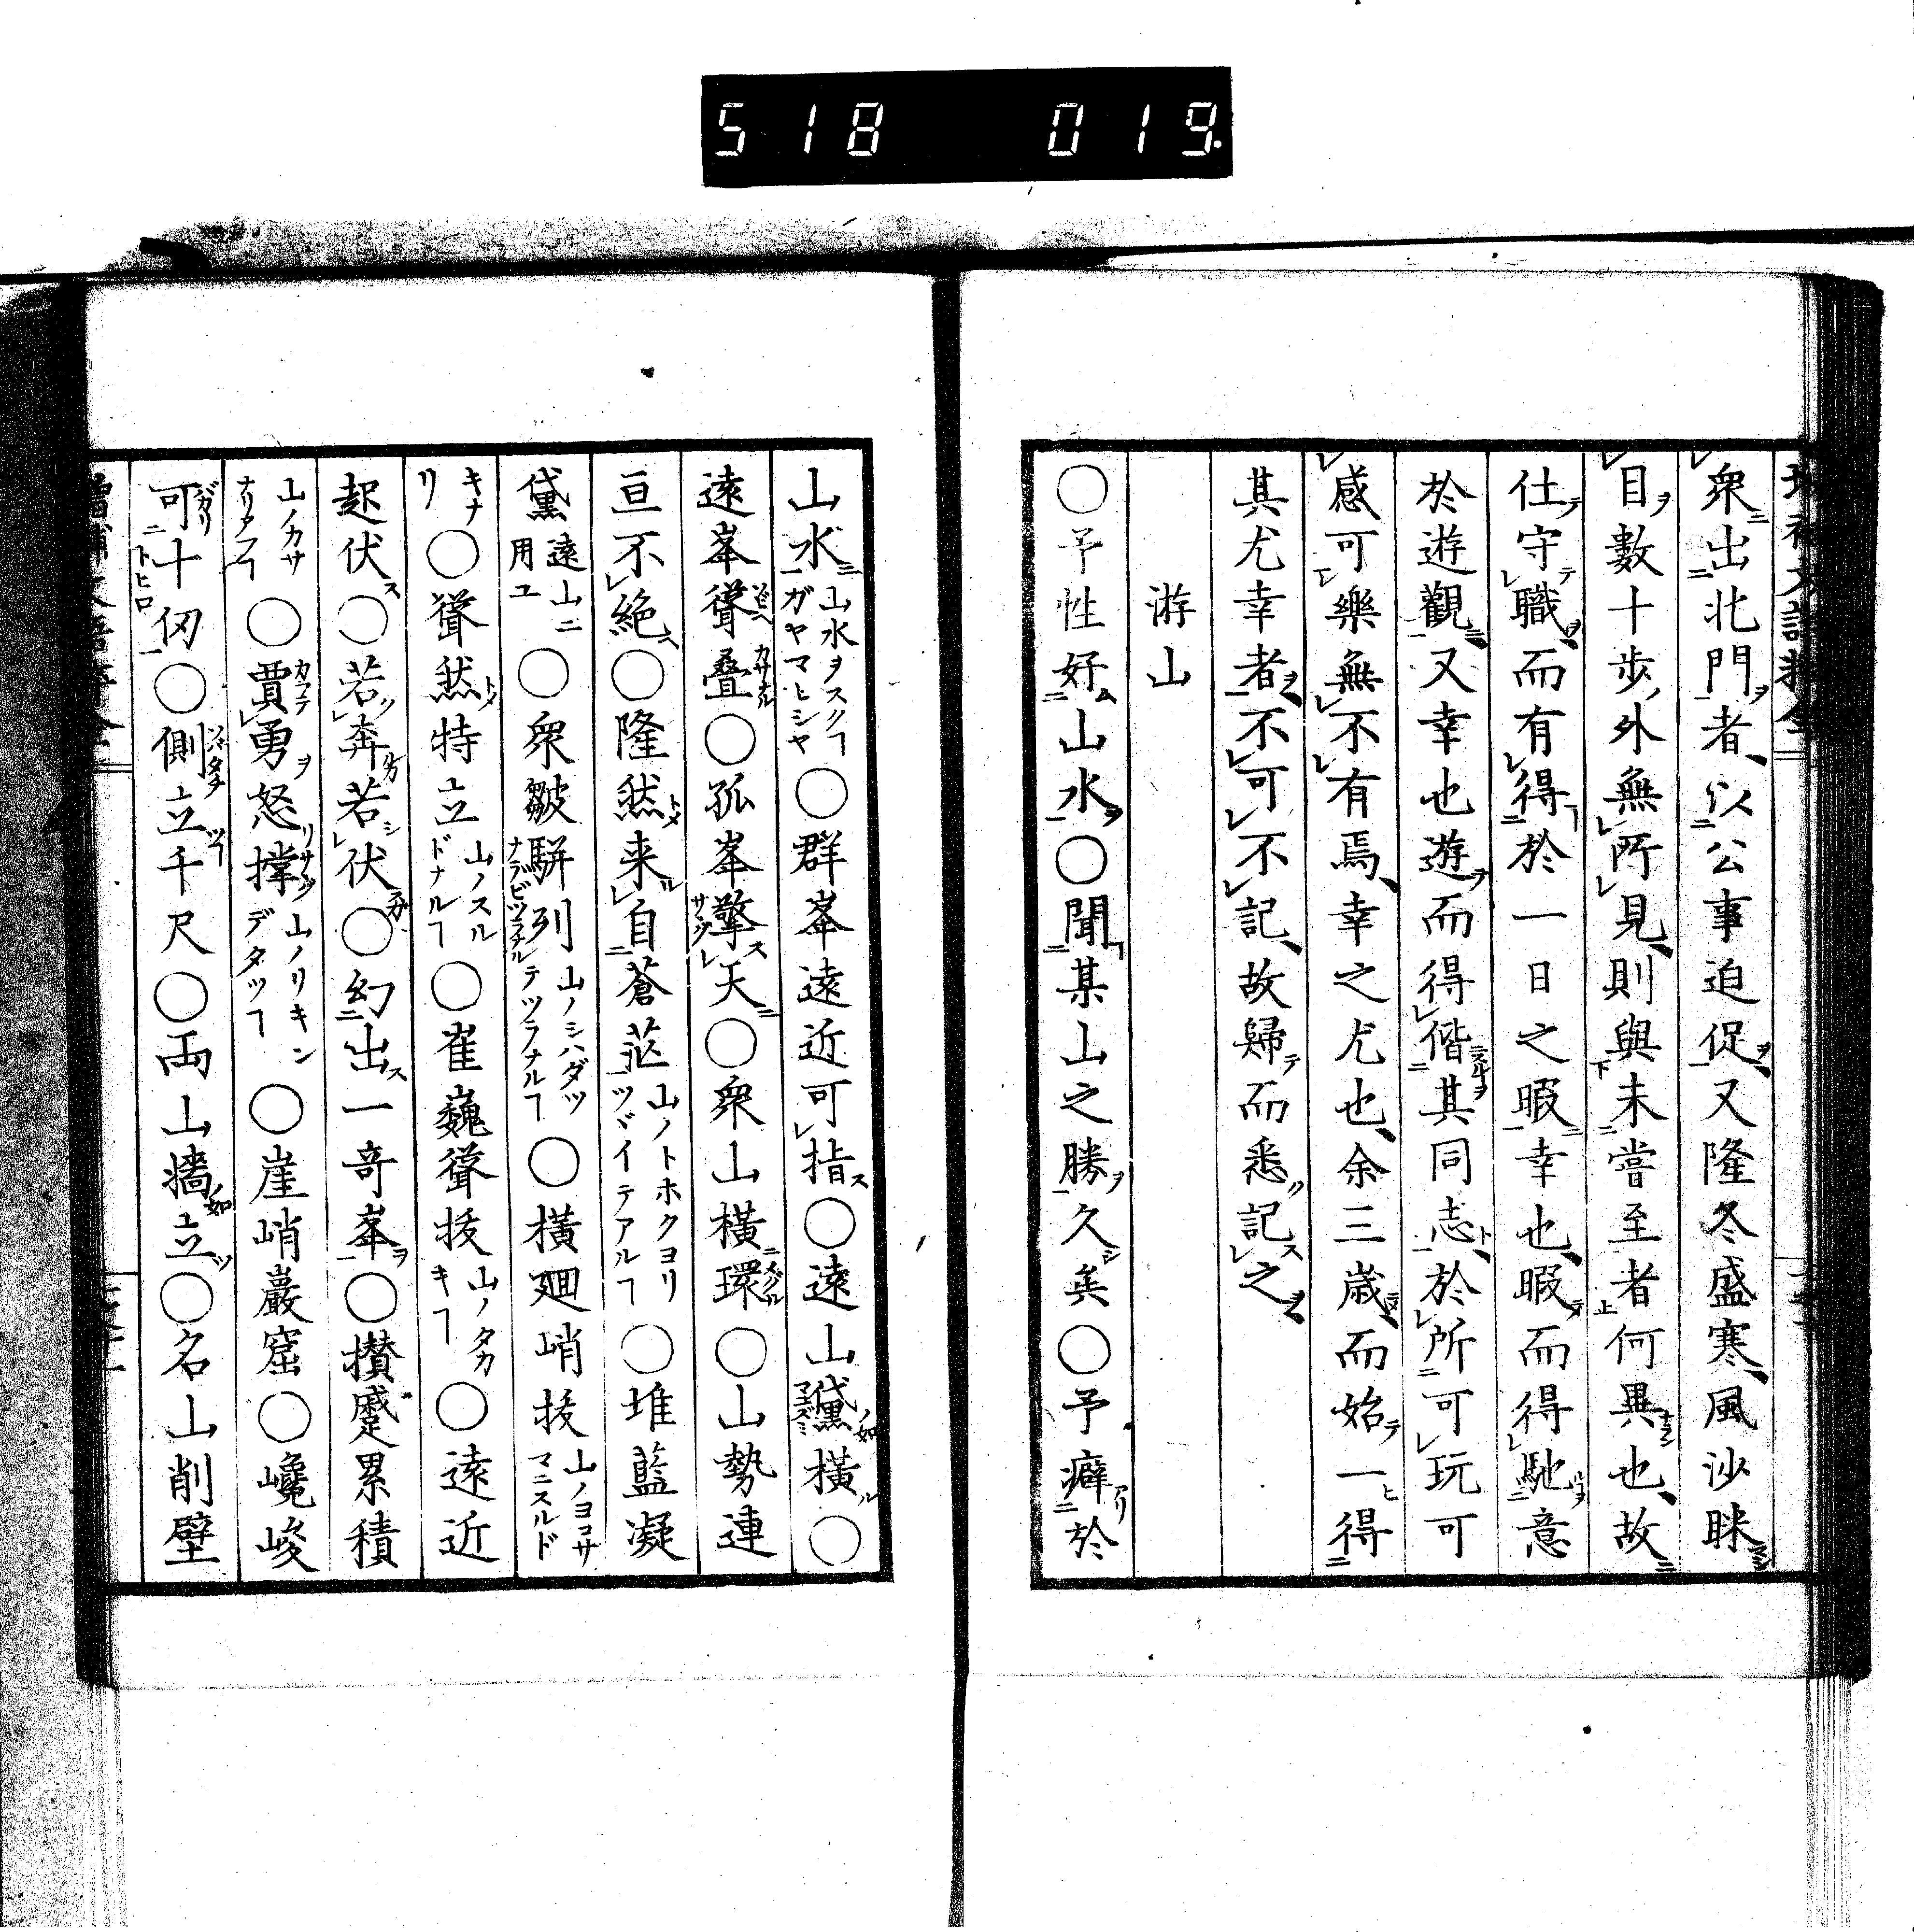 518 019
衆出北門者以公事迫促又隆冬盛寒風沙眯
目數十歩外無所見則與未嘗至者何異也故
仕守職而有得於一日之暇幸也暇而得馳意
於遊觀又幸也遊而得偕其同志於所可玩可
感可樂無不有焉幸之尤也余三歳而始一得
其尤幸者不可不記故歸而悉記之
游山
○予性好山水○聞某山之勝久矣○予癖於
山水山水ヲスクヿガヤマヒシヤ○群峯遠近可指○遠山黛横○
遠峯聳疊○孤峯擎天○衆山横環○山勢連
亘不絶○隆然来自蒼茫山ノトホクヨリツヾイテアルヿ○堆藍凝
黛遠山ニ用ユ○衆皺駢列山ノシハダツテツラナルヿ○横廻峭抜山ノヨコサマニスルド
キナリ○聳然特立山ノスルドナルヿ○崔巍聳抜山ノタカキヿ○遠近
起伏○若奔若伏○幻出一奇峯○攅蹙累積
山ノカサナリアフヿ○賈勇怒撑山ノリキンデタツヿ○崖峭巖窟○巉峻
可十仞○側立千尺○両山牆立○名山削壁